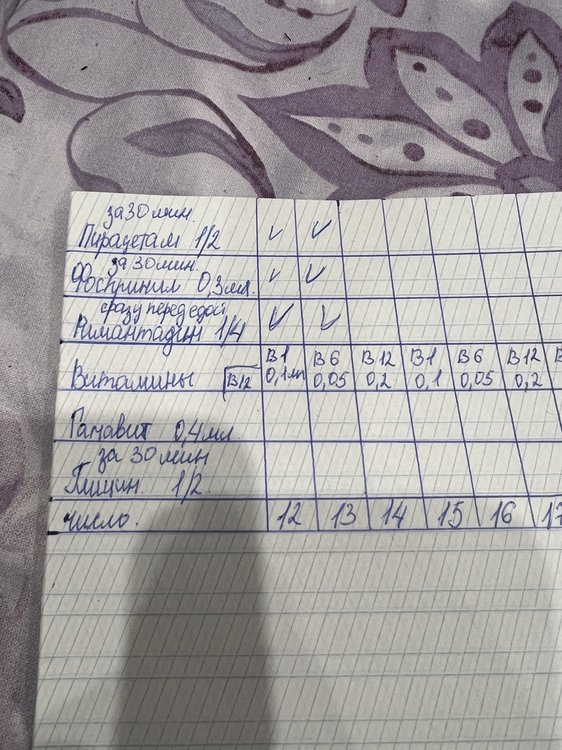 за 30 мин.
Пирацетам 1/2 ✓ ✓
за 30 мин.
Фоспринил 0,3 мл. ✓ ✓
сразу перед едой
Римантадин 1/4 ✓ ✓
B1 B6 B12 B1 B6 B12
Витамины B12 0,1мл 0,05 0,2 0,1 0,05 0,2
Гамавит 0,4 мл
за 30 мин
Глицин. 1/2
число. 12 13 14 15 16 17